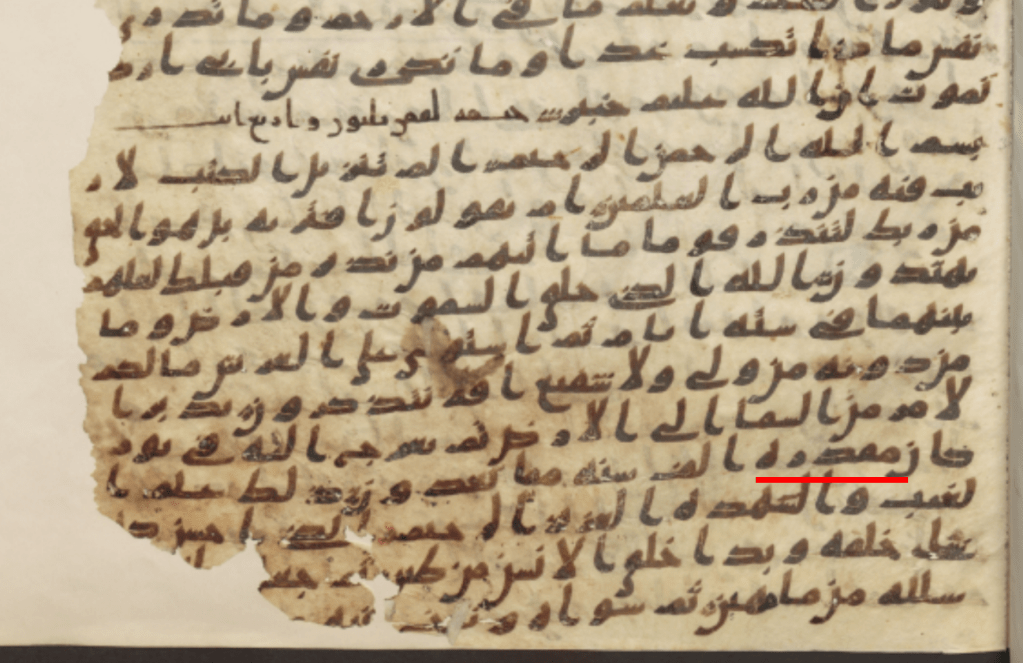 وينزل الغيث ويعلم ما في الارحم وما تدري
نفس ماذا تكسب غدا وما تدري نفس باي ارض
تموت ان الله عليم خبير لقمن ثلثون واربع
بسم الله الرحمن الرحيم الم تنزيل الكتب لا ر
يب فيه من رب العلمين ام يقولون افتريه بل هو الحق
من ربك لتنذر قوما ما اتيهم من نذير من قبلك لعلهم
يهتدون الله الذي خلق السموت والارض وما
بينهما في ستة ايام ثم استوي علي العرش ما لكم
من دونه من ولي ولا شفيع افلا تتذكرون يدبر ا
لامر من السما الي الارض ثم يعرج اليه في يوم
كان مقدره الف سنه مما تعدون ذلك علم ا
لغيب والشهده العزيز الرحيم الذي احسن كل
شي خلقه وبدا خلق الانسن من طين ثم جعل
سلله من ما مهين ثم سويه ونفخ فيه